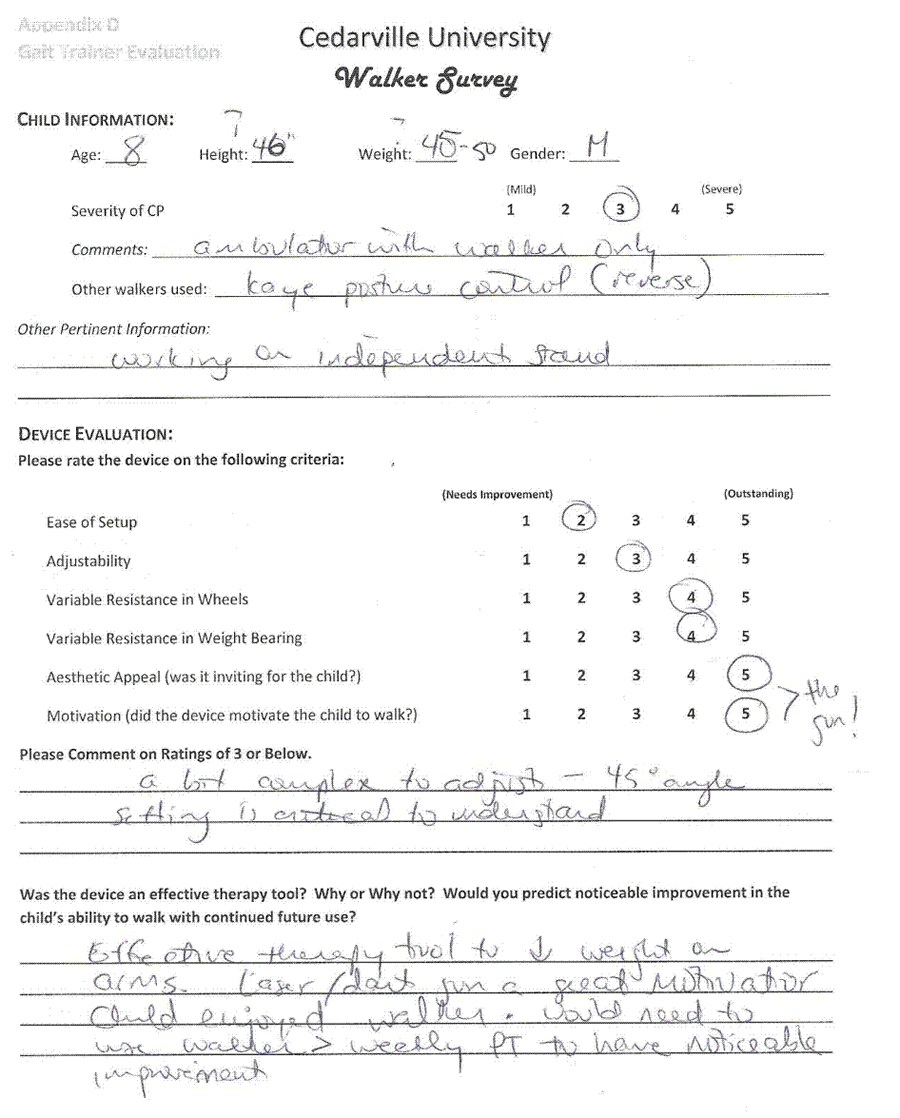 Appendix D
Gait Trainer Evaluation
Cedarville University
Walker Survey
CHILD INFORMATION:
? ?
Age: 8 Height: 46" Weight: 45-50 Gender: M
(Mild) (Severe)
Severity of CP 1 2 3 4 5
Comments: ambulator with walker only
Other walkers used: kaye posture control (reverse)
Other Pertinent Information:
working on independent stand
DEVICE EVALUATION:
Please rate the device on the following criteria:
(Needs Improvement) (Outstanding)
Ease of Setup 1 2 3 4 5
Adjustability 1 2 3 4 5
Variable Resistance in Wheels 1 2 3 4 5
Variable Resistance in Weight Bearing 1 2 3 4 5
Aesthetic Appeal (was it inviting for the child?) 1 2 3 4 5
Motivation (did the device motivate the child to walk?) 1 2 3 4 5
> the
gun!
Please Comment on Ratings of 3 or Below.
a bit complex to adjust – 45° angle
setting is critical to understand
Was the device an effective therapy tool? Why or Why not? Would you predict noticeable improvement in the
child's ability to walk with continued future use?
Effective therapy tool to ↓ weight on
arms. Laser/dart gun a great motivator
Child enjoyed walker. Would need to
use walker > weekly PT to have noticeable
improvement